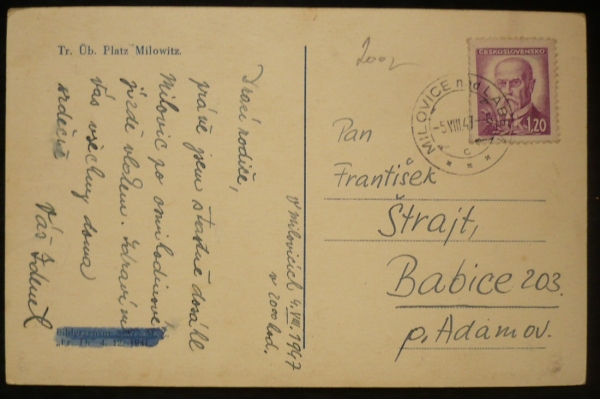 Tr. Üb. Platz Milowitz.
Drazí rodiče,
právě jsem šťastně dosáhl
Milovic po osmihodinové
jízdě vlakem. Zdravím
Vás všechny doma
srdečně
Váš Zdeněk
V Milovicích 4.VIII.1947
v 2000 hod.
ČESKOSLOVENSKO
1.20
MILOVICE nad LABEM
-5.VIII.47
Pan
František
Štrajt,
Babice 203.
p. Adamov.